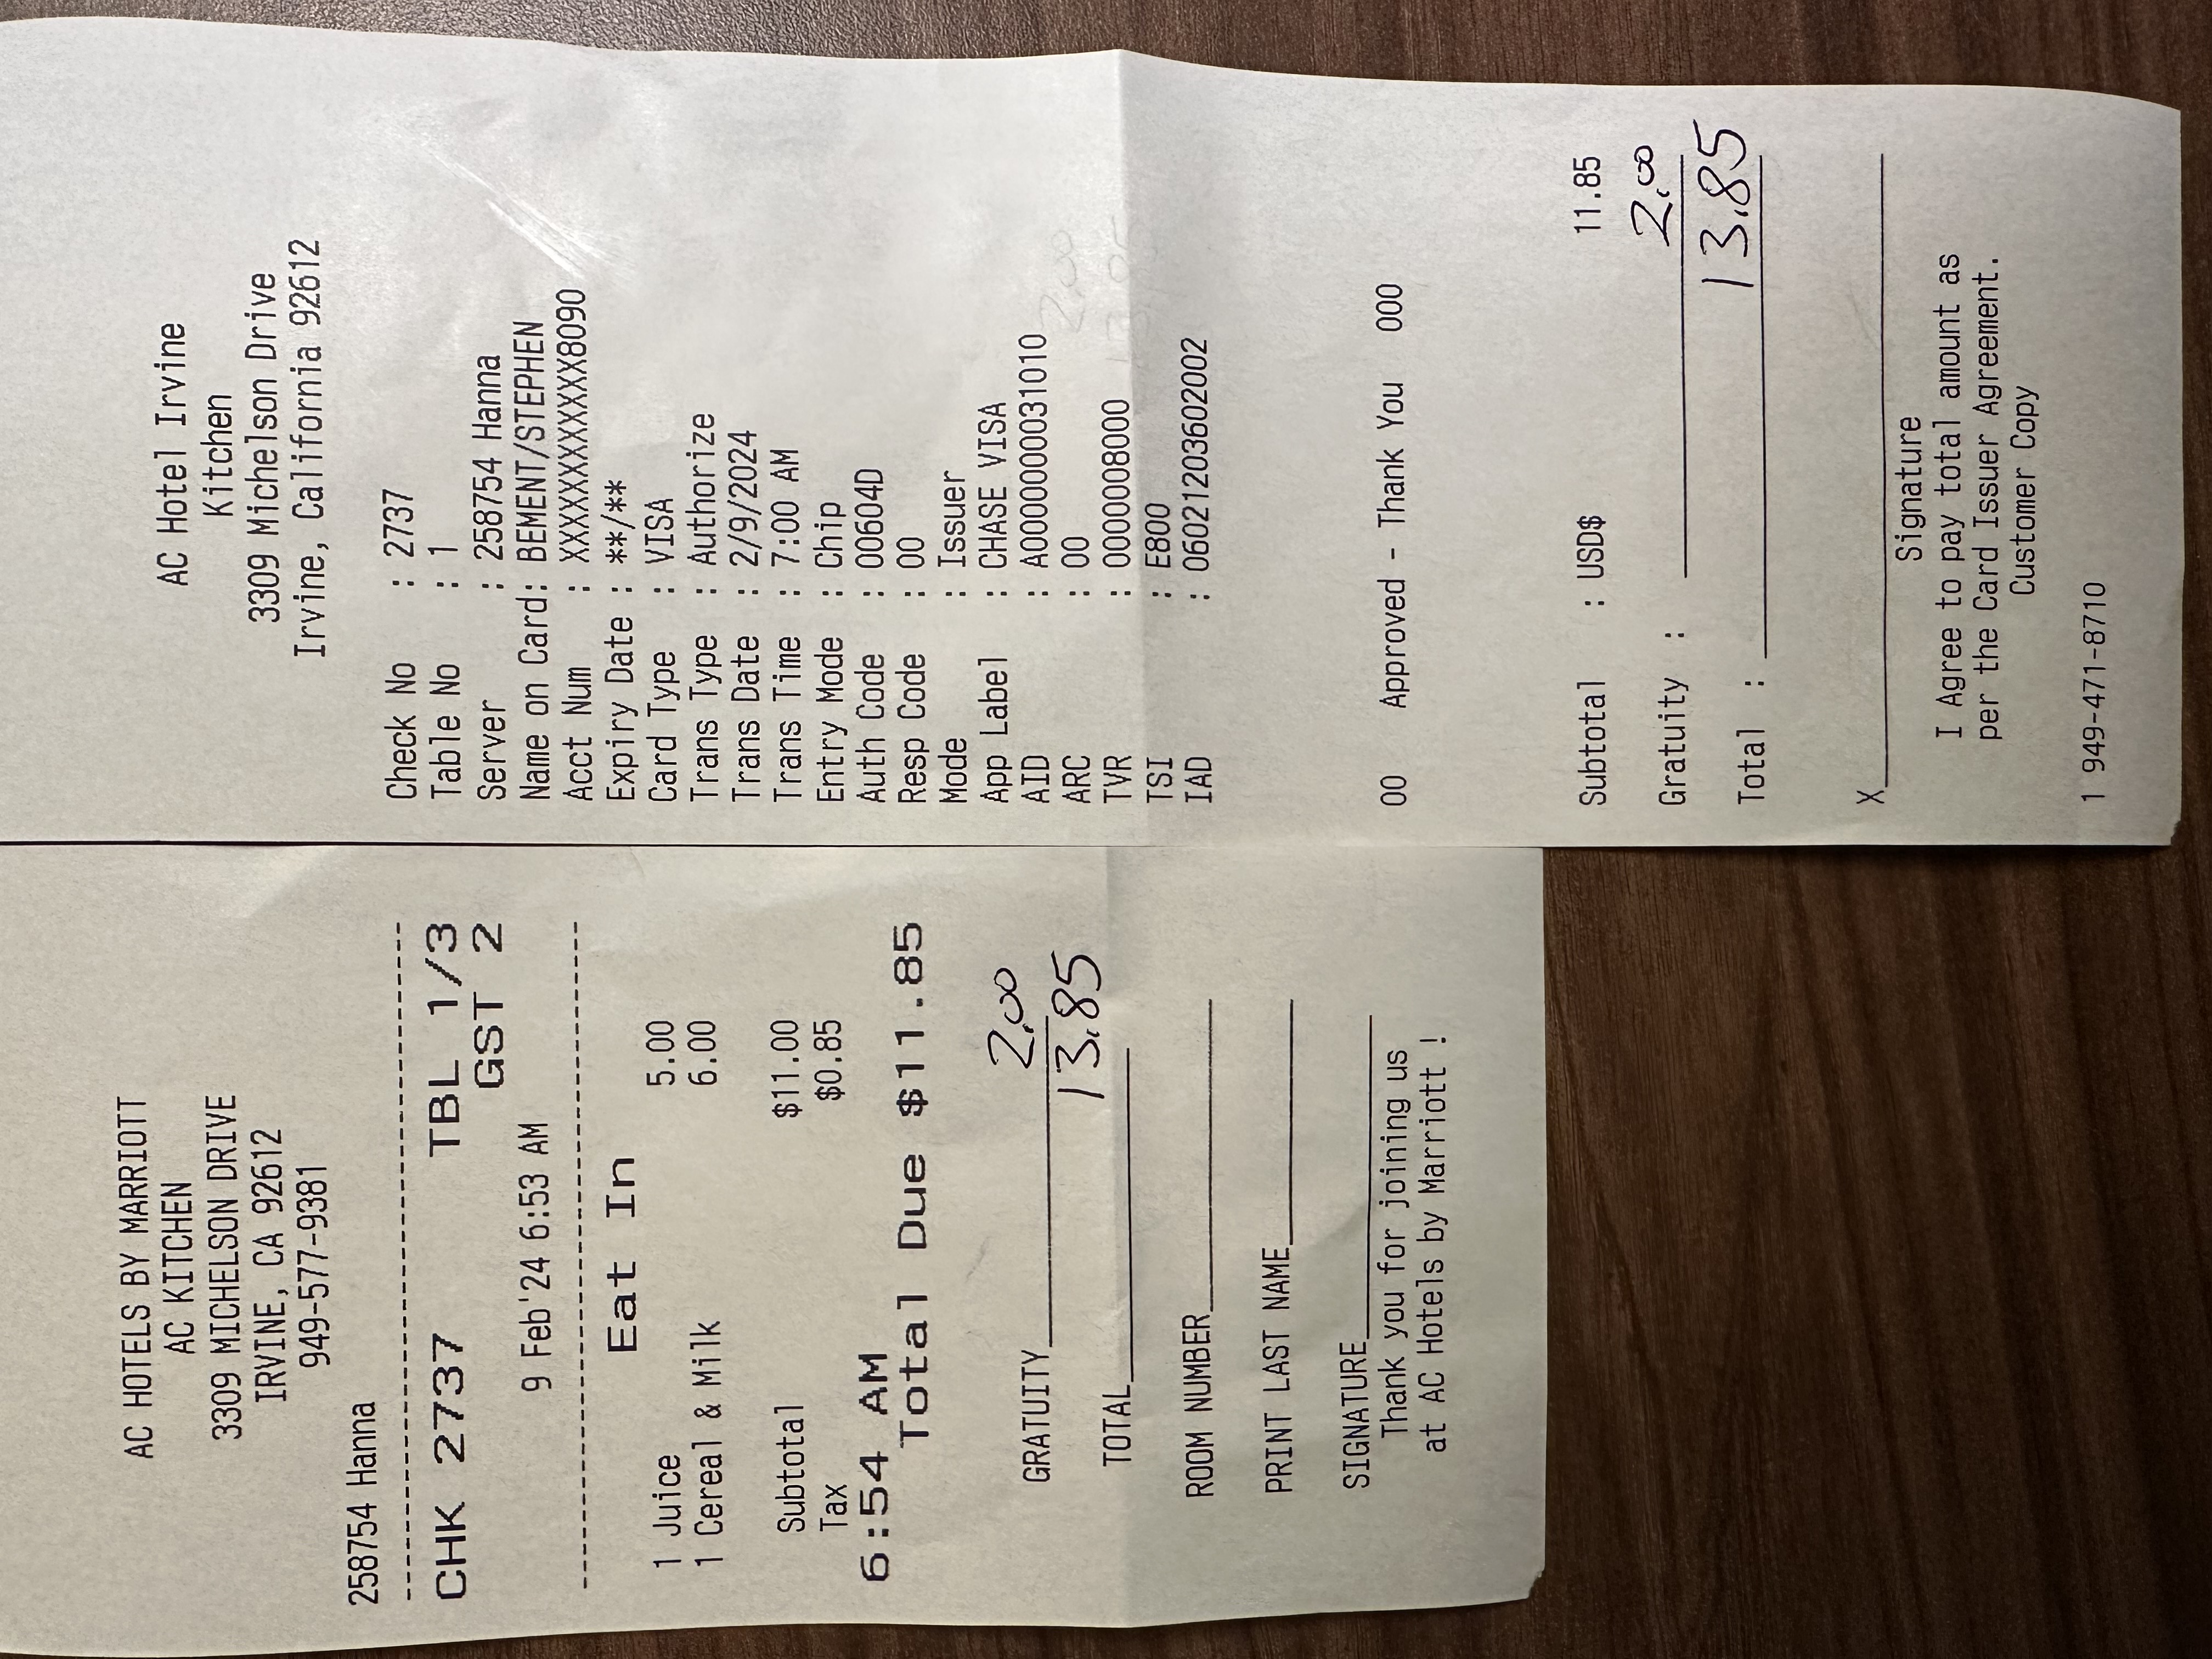 AC HOTELS BY MARRIOTT
AC KITCHEN
3309 MICHELSON DRIVE
IRVINE, CA 92612
949-577-9381
258754 Hanna
----------------------------------------
CHK 2737 TBL 1/3
GST 2
9 Feb'24 6:53 AM
----------------------------------------
Eat In
1 Juice 5.00
1 Cereal & Milk 6.00
Subtotal $11.00
Tax $0.85
6:54 AM
Total Due $11.85
GRATUITY 2.00
TOTAL 13.85
ROOM NUMBER
PRINT LAST NAME
SIGNATURE
Thank you for joining us
at AC Hotels by Marriott !
AC Hotel Irvine
Kitchen
3309 Michelson Drive
Irvine, California 92612
Check No : 2737
Table No : 1
Server : 258754 Hanna
Name on Card: BEMENT/STEPHEN
Acct Num : XXXXXXXXXXXX8090
Expiry Date : **/**
Card Type : VISA
Trans Type : Authorize
Trans Date : 2/9/2024
Trans Time : 7:00 AM
Entry Mode : Chip
Auth Code : 00604D
Resp Code : 00
Mode : Issuer
App Label : CHASE VISA
AID : A0000000031010
ARC : 00
TVR : 0000008000
TSI : E800
IAD : 06021203602002
00 Approved - Thank You 000
Subtotal : USD$ 11.85
Gratuity : 2.00
Total : 13.85
X
Signature
I Agree to pay total amount as
per the Card Issuer Agreement.
Customer Copy
1 949-471-8710